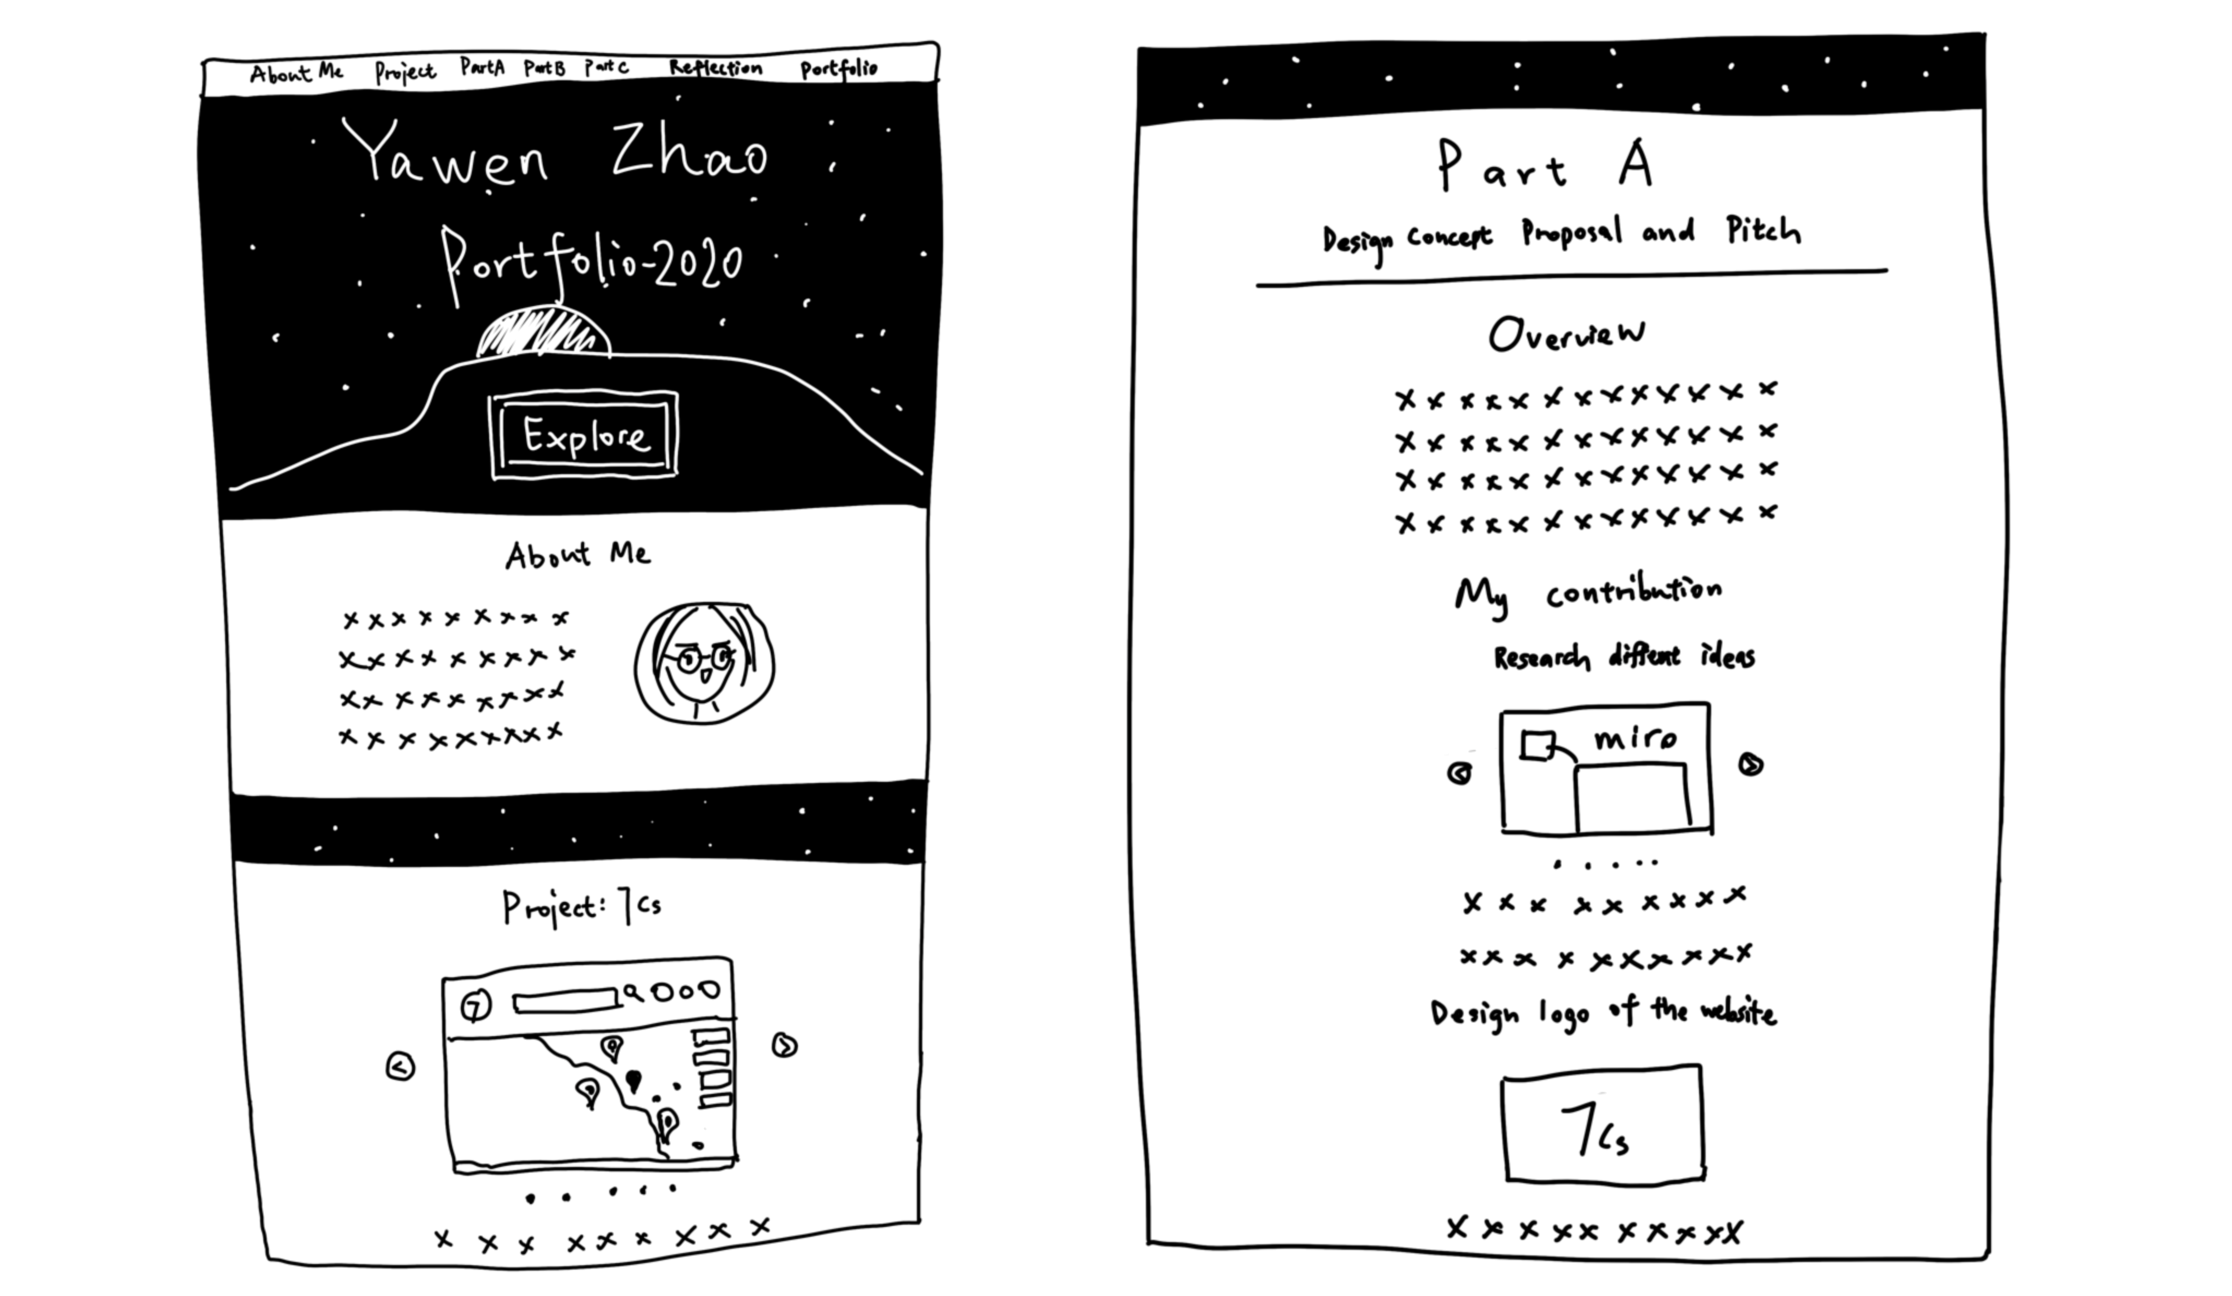 About Me Project PartA PartB Part C Reflection Portfolio
Yawen Zhao
Portfolio-2020
Explore
About Me
x x x x x x x x x
x x x x x x x x x
x x x x x x x x x
x x x x x x x x x
Project: 7Cs
7
<
>
x x x x x x x x x
Part A
Design Concept Proposal and Pitch
Overview
x x x x x x x x x x x x x
x x x x x x x x x x x x x
x x x x x x x x x x x x x
x x x x x x x x x x x x x
My contribution
Research diffent ideas
miro
<
>
x x x x x x x x x
x x x x x x x x x x
Design logo of the website
7Cs
x x x x x x x x x x